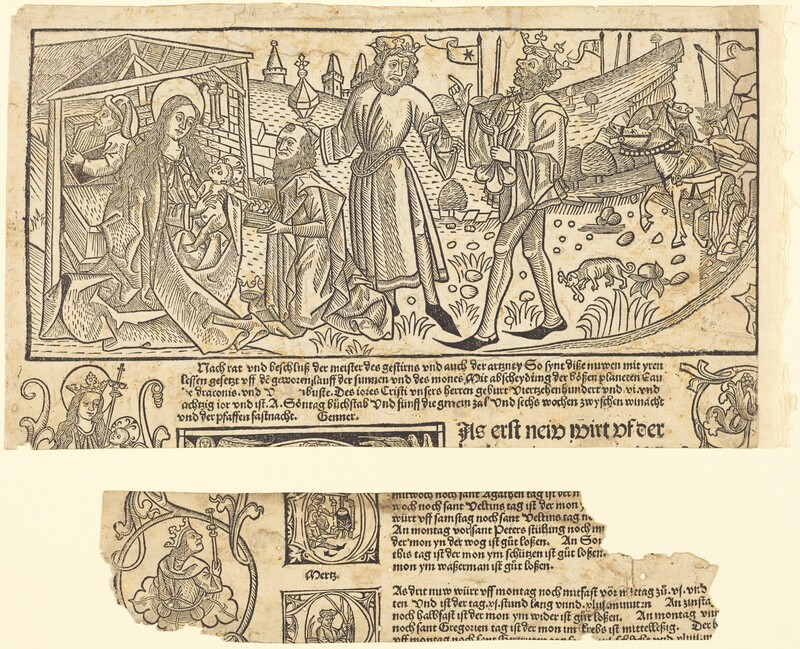 Nach rat vnd beschluß der meister des gestirns vnd auch der artzney So synt diße nuwen mit yren
lessen gesetzt vff dē gewonen lauff der sunnen vnd des mones Mit abscheydung der bößen planeten Cau
draconis. vnd buste. Des iores Cristi vnsers herren geburt Viertzehenhundert vnd vi. vnd
achtzig ior vnd ist. A. Sōntag bůchstab Vnd fünff die gulden zal Vnd sechs wochen zwyschen winacht
vnd der pfaffen fastnacht. Genner.
As erst neiv wirt vf der
mitwoch noch sant Agathen tag ist der
woch noch sant Veltins tag ist der mon
würt vff samstag noch sant Veltins tag
An montag vor sant Peters stůlung noch
der mon yn der wog ist gůt loßen. An
this tag ist der mon ym schützen ist gůt loßen.
mon ym waßerman ist gůt loßen.
Mertz.
As drit nuw würt vff montag noch mitfast vor mittag zů. vi. vnd
ten Vnd ist der tag. xi. stund lang vnnd. An zinsta
noch halbfast ist der mon ym wider ist gůt loßen. An montag
noch sant Gregorien tag ist der mon im krebs ist mittelleßig. Der
vff montag noch sant